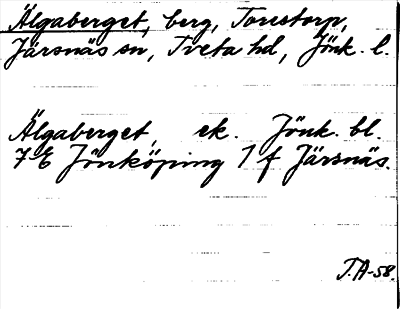 Älgaberget, berg, Torestorp,
Järsnäs sn, Tveta hd, Jönk. l.
Älgaberget, ek. Jönk. bl.
7 E Jönköping 1 f Järsnäs.
T.A-58.